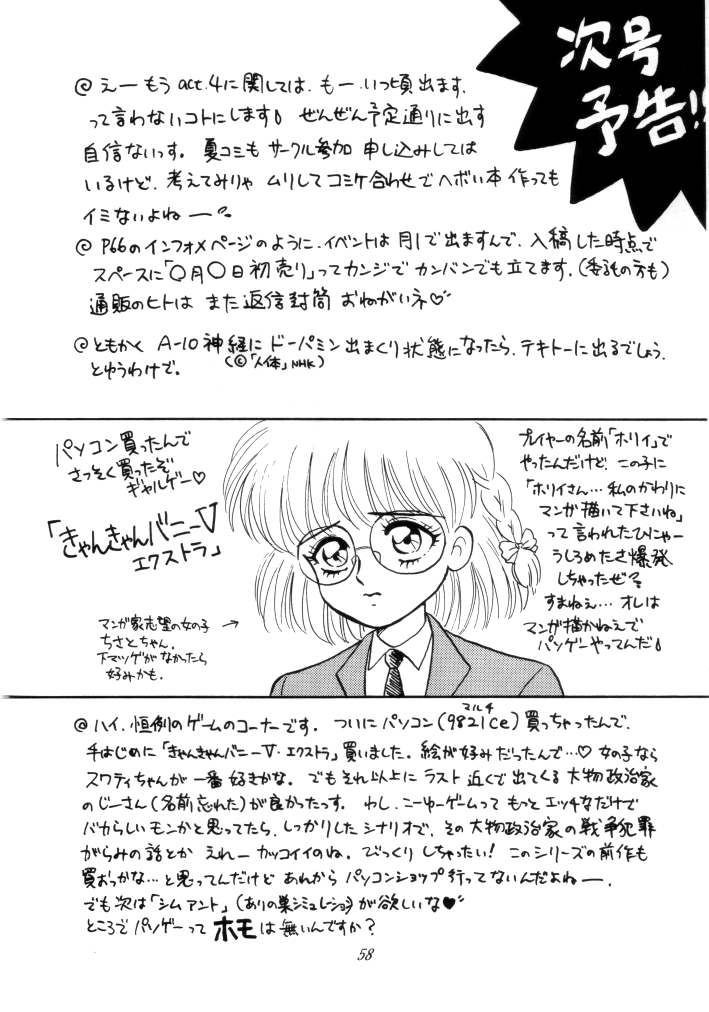 次号
予告!!
@ えーもう act.4に関しては、もー、いつ頃出ます、
って言わないコトにします。ぜんぜん予定通りに出す
自信ないっす。夏コミも サークル参加 申し込みしては
いるけど、考えてみりゃ ムリしてコミケ合わせでヘボい本 作っても
イミないよねー
@ P66のインフォメページのように、イベントは月1で出ますんで、入稿した時点で
スペースに「○月○日初売り」ってカンジで カンバンでも立てます。(委託の方も)
通販のヒトは また返信封筒 おねがいネ♡
@ ともかく A-10神経に ドーパミン出まくり状態になったら、テキトーに出るでしょう。
(©「人体」NHK)
とゆうわけで。
パソコン買ったんで
さっそく買ったぞ
ギャルゲー♡
「きゃんきゃんバニーV
エクストラ」
マンガ家志望の女の子 →
ちさとちゃん。
下マツゲがなかったら
好みかも。
プレイヤーの名前「ホリイ」で
やったんだけど、この子に
「ホリイさん…私のかわりに
マンガ描いて下さいね」
って言われたひにゃー
うしろめたさ爆発
しちゃったぜ
すまねえ…オレは
マンガ描かねえで
パソゲーやってんだ
@ ハイ、恒例のゲームのコーナーです。 ついに パソコン(9821Ce)買っちゃったんで、
マルチ
手はじめに「きゃんきゃんバニーV・エクストラ」買いました。絵が好みだったんで…♡ 女の子なら
スワティちゃんが 一番 好きかな。 でもそれ以上に ラスト 近くで出てくる 大物政治家
のじーさん(名前忘れた)が良かったっす。 わし、こーゆーゲームって もっと エッチなだけで
バカらしいモンかと思ってたら、しっかりしたシナリオで、その大物政治家の戦争犯罪
がらみの話とか えれー カッコイイのね。びっくり しちゃったい! このシリーズの前作も
買おっかな…と思ってんだけど あれから パソコンショップ行ってないんだよねー。
でも次は「シムアント」(ありの巣シミュレーション)が欲しいな♥
ところでパソゲーって ホモは無いんですか?
58